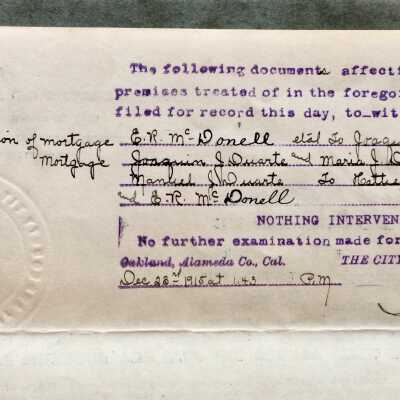 The following documents affecti
premises treated of in the foregoi
filed for record this day, to-wit
ion of mortgage E.R. McDonell etal To Joaqu
Mortgage Joaquin J. Duarte and Maria J. D
Manuel J. Duarte To Hattie
and E.R. McDonell
NOTHING INTERVEN
No further examination made for
Oakland, Alameda Co., Cal. THE CITY
Dec 23rd 1915 at 1:43 P.M